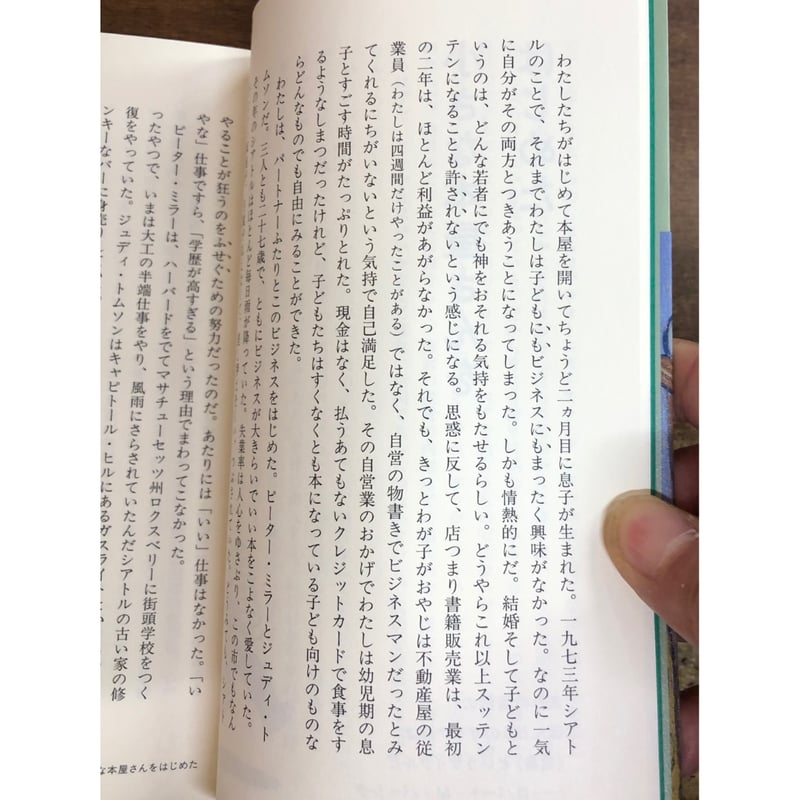 わたしたちがはじめて本屋を開いてちょうど二ヵ月目に息子が生まれた。一九七三年シアト
ルのことで、それまでわたしは子どもにもビジネスにもまったく興味がなかった。なのに一気
に自分がその両方とつきあうことになってしまった。しかも情熱的にだ。結婚そして子どもと
いうのは、どんな若者にでも神をおそれる気持をもたせるらしい。どうやらこれ以上スッテン
テンになることも許されないという感じになる。思惑に反して、店つまり書籍販売業は、最初
の二年は、ほとんど利益があがらなかった。それでも、きっとわが子がおやじは不動産屋の従
業員（わたしは四週間だけやったことがある）ではなく、自営の物書きでビジネスマンだったとみ
てくれるにちがいないという気持で自己満足した。その自営業のおかげでわたしは幼児期の息
子とすごす時間がたっぷりとれた。現金はなく、払うあてもないクレジットカードで食事をす
るようなしまつだったけれど、子どもたちはすくなくとも本になっている子ども向けのものな
らどんなものでも自由にみることができた。
わたしは、パートナーふたりとこのビジネスをはじめた。ピーター・ミラーとジュディ・ト
ムソンだ。三人とも二十七歳で、ともにビジネスが大きらいでいい本をこよなく愛していた。
その年のシアトルはほとんど毎日雨が降っていた。失業率は人心をゆさぶり、この市でもなん
やることが狂うのをふせぐための努力だったのだ。あたりには「いい」仕事はなかった。「い
やな」仕事ですら、「学歴が高すぎる」という理由でまわってこなかった。
ピーター・ミラーは、ハーバードをでてマサチューセッツ州ロクスベリーに街頭学校をつく
ったやつで、いまは大工の半端仕事をやり、風雨にさらされていたんだシアトルの古い家の修
復をやっていた。ジュディ・トムソンはキャピトール・ヒルにあるガスライト
ンキーなバーに身売り
な本屋さんをはじめた